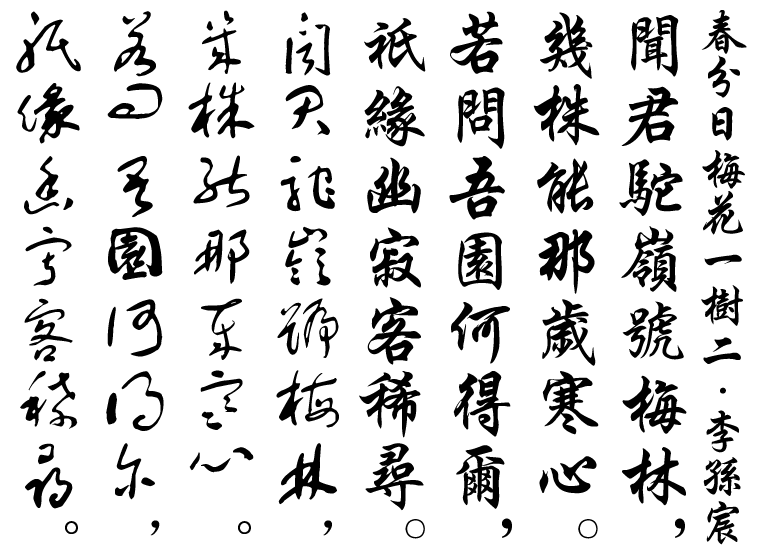 春分日梅花一樹二·李孫宸
聞君駝嶺號梅林，
幾株能那歲寒心。
若問吾園何得爾，
祇緣幽寂客稀尋。
聞君駝嶺號梅林，
幾株能那歲寒心。
若問吾園何得爾，
祇緣幽寂客稀尋。